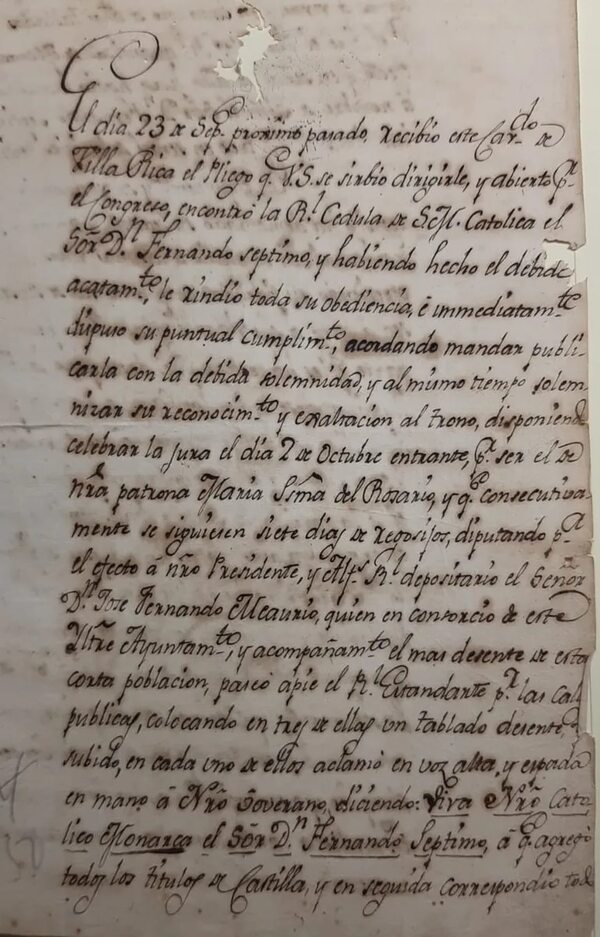 El dia 23 de Sepe. proximo pasado, recibio este Car.do de
Villa Rica el Pliego q.e V.S. se sirbio dirigirle, y abierto p.r
el Congreso, encontró la R.l Cedula de S.M. Catolica el
Sõr D.n Fernando septimo, y habiendo hecho el debido
acatam.to, le rindio toda su obediencia, é immediatam.te
dispuso su puntual cumplim.to, acordando mandar publi-
carla con la debida solemnidad, y al mismo tiempo solem-
nizar su reconocim.to y exaltacion al trono, disponiend
celebrar la jura el dia 2 de Octubre entrante, p.r ser el de
nrã patrona Maria Ssma del Rosario, y q.e consecutiva-
mente se siguiesen siete dias de regosijos, diputando p.a
el efecto á nrõ Presidente, y Alf.s R.l depositario el Señor
D.n José Fernando Meaurio, quien en consorcio de este
Yltrẽ Ayuntam.to, y acompañam.to el mas desente de esta
corta poblacion, paseó apie el R.l Estandarte p.r las cal
publicas, colocando en tres de ellas un tablado desente,
subido, en cada uno de ellos aclamó en voz alta, y espada
en mano á Nrõ Soverano, diciendo: Viva Nrõ Cato-
lico Monarca el Sõr D.n Fernando Septimo, á q.e agregó
todos los titulos de Castilla, y en seguida correspondio tod